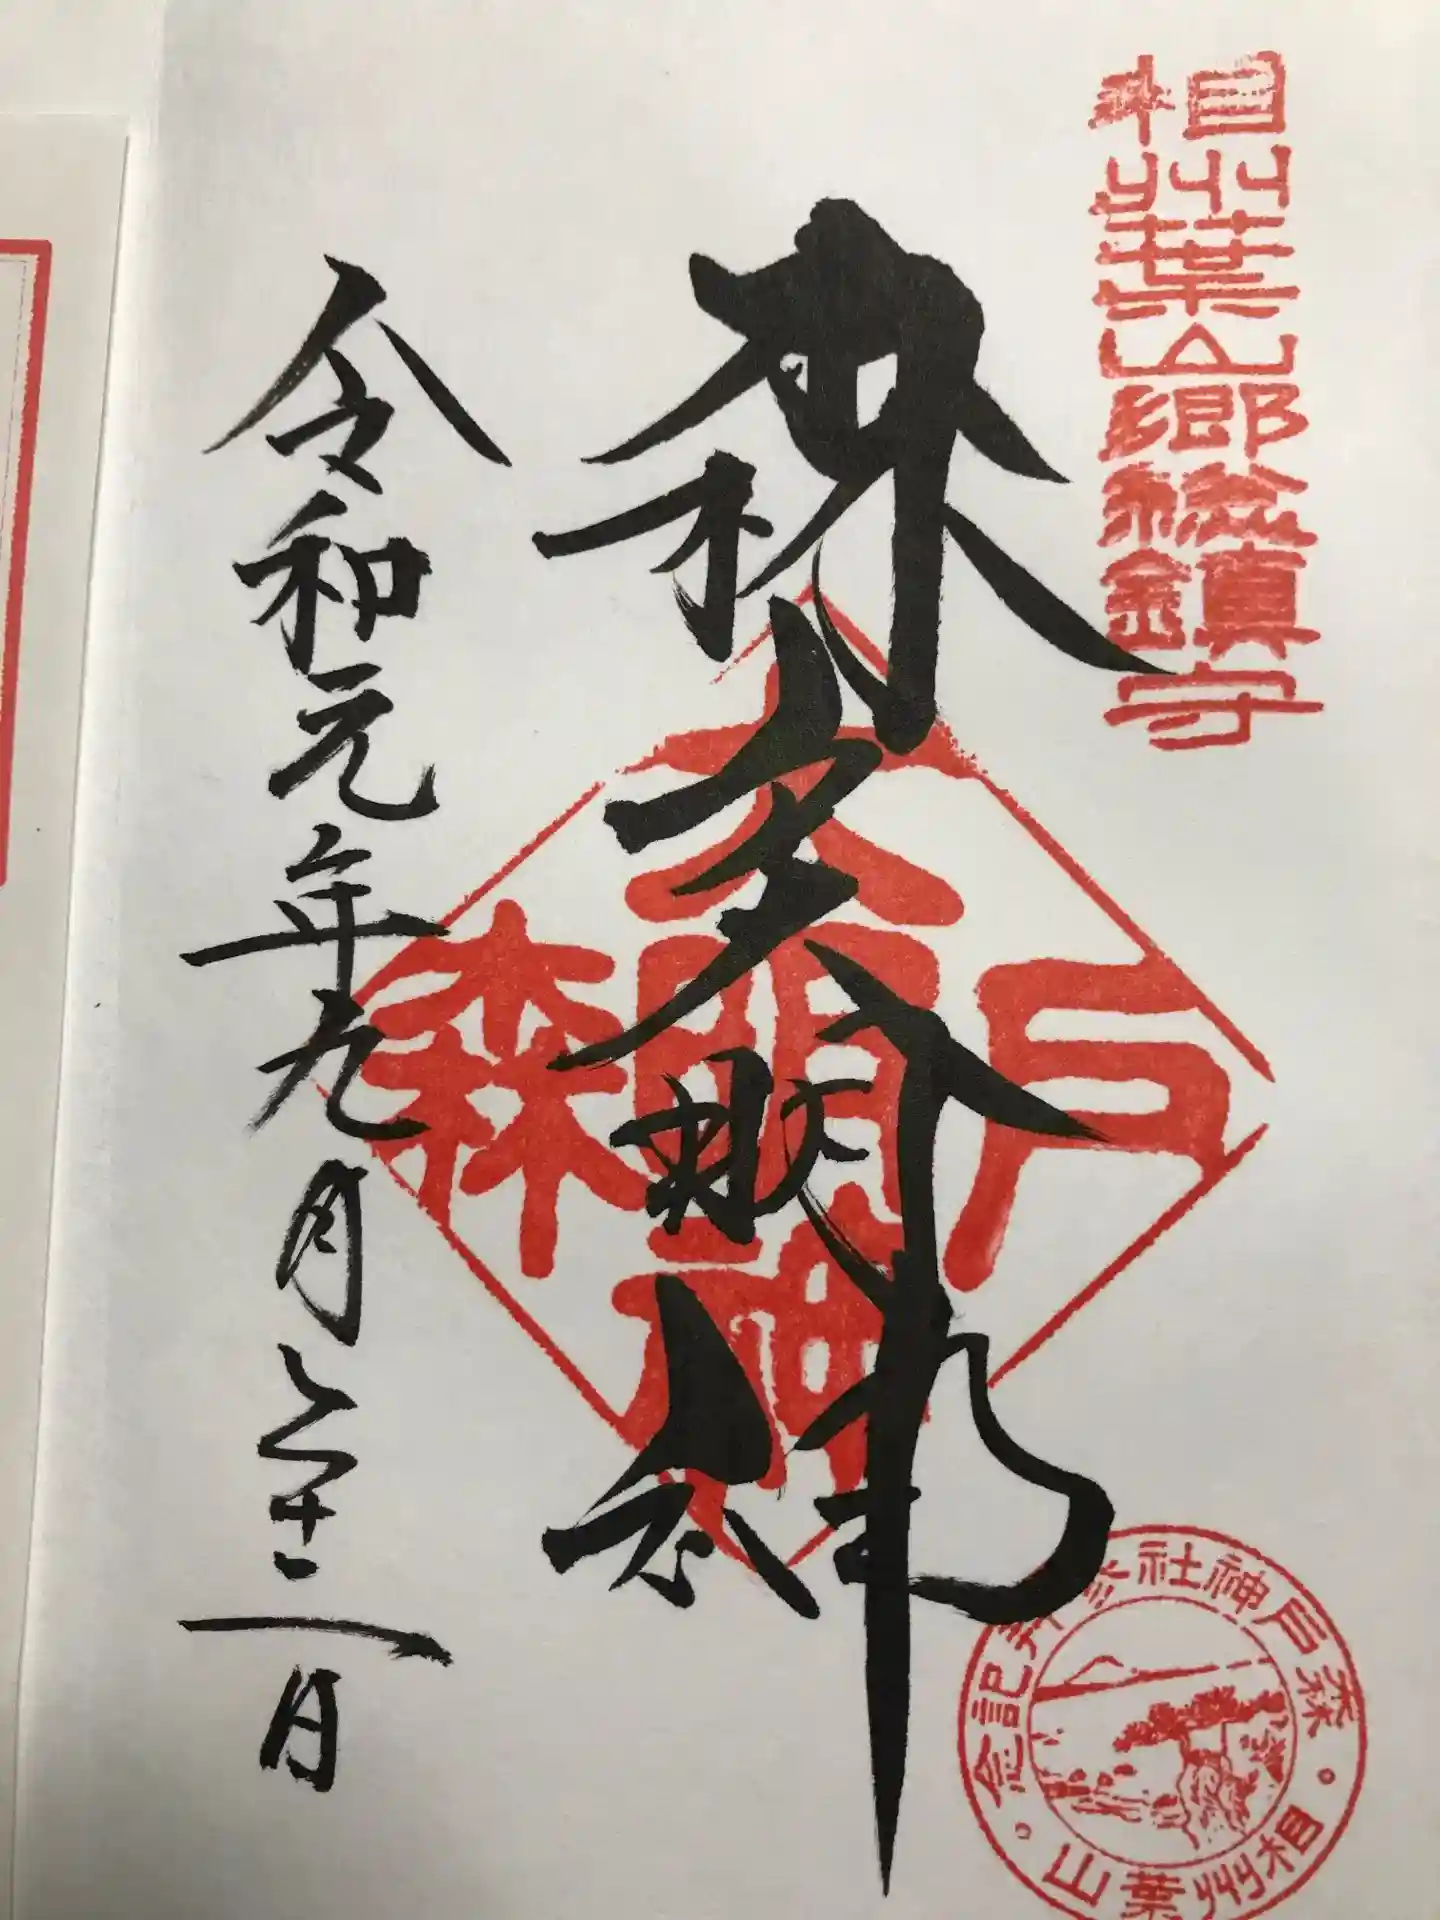 相州葉山郷総鎮守
森戸大明神
大明神
森 戸
令和元年九月二十二日
森戸神社参拝記念
相州葉山